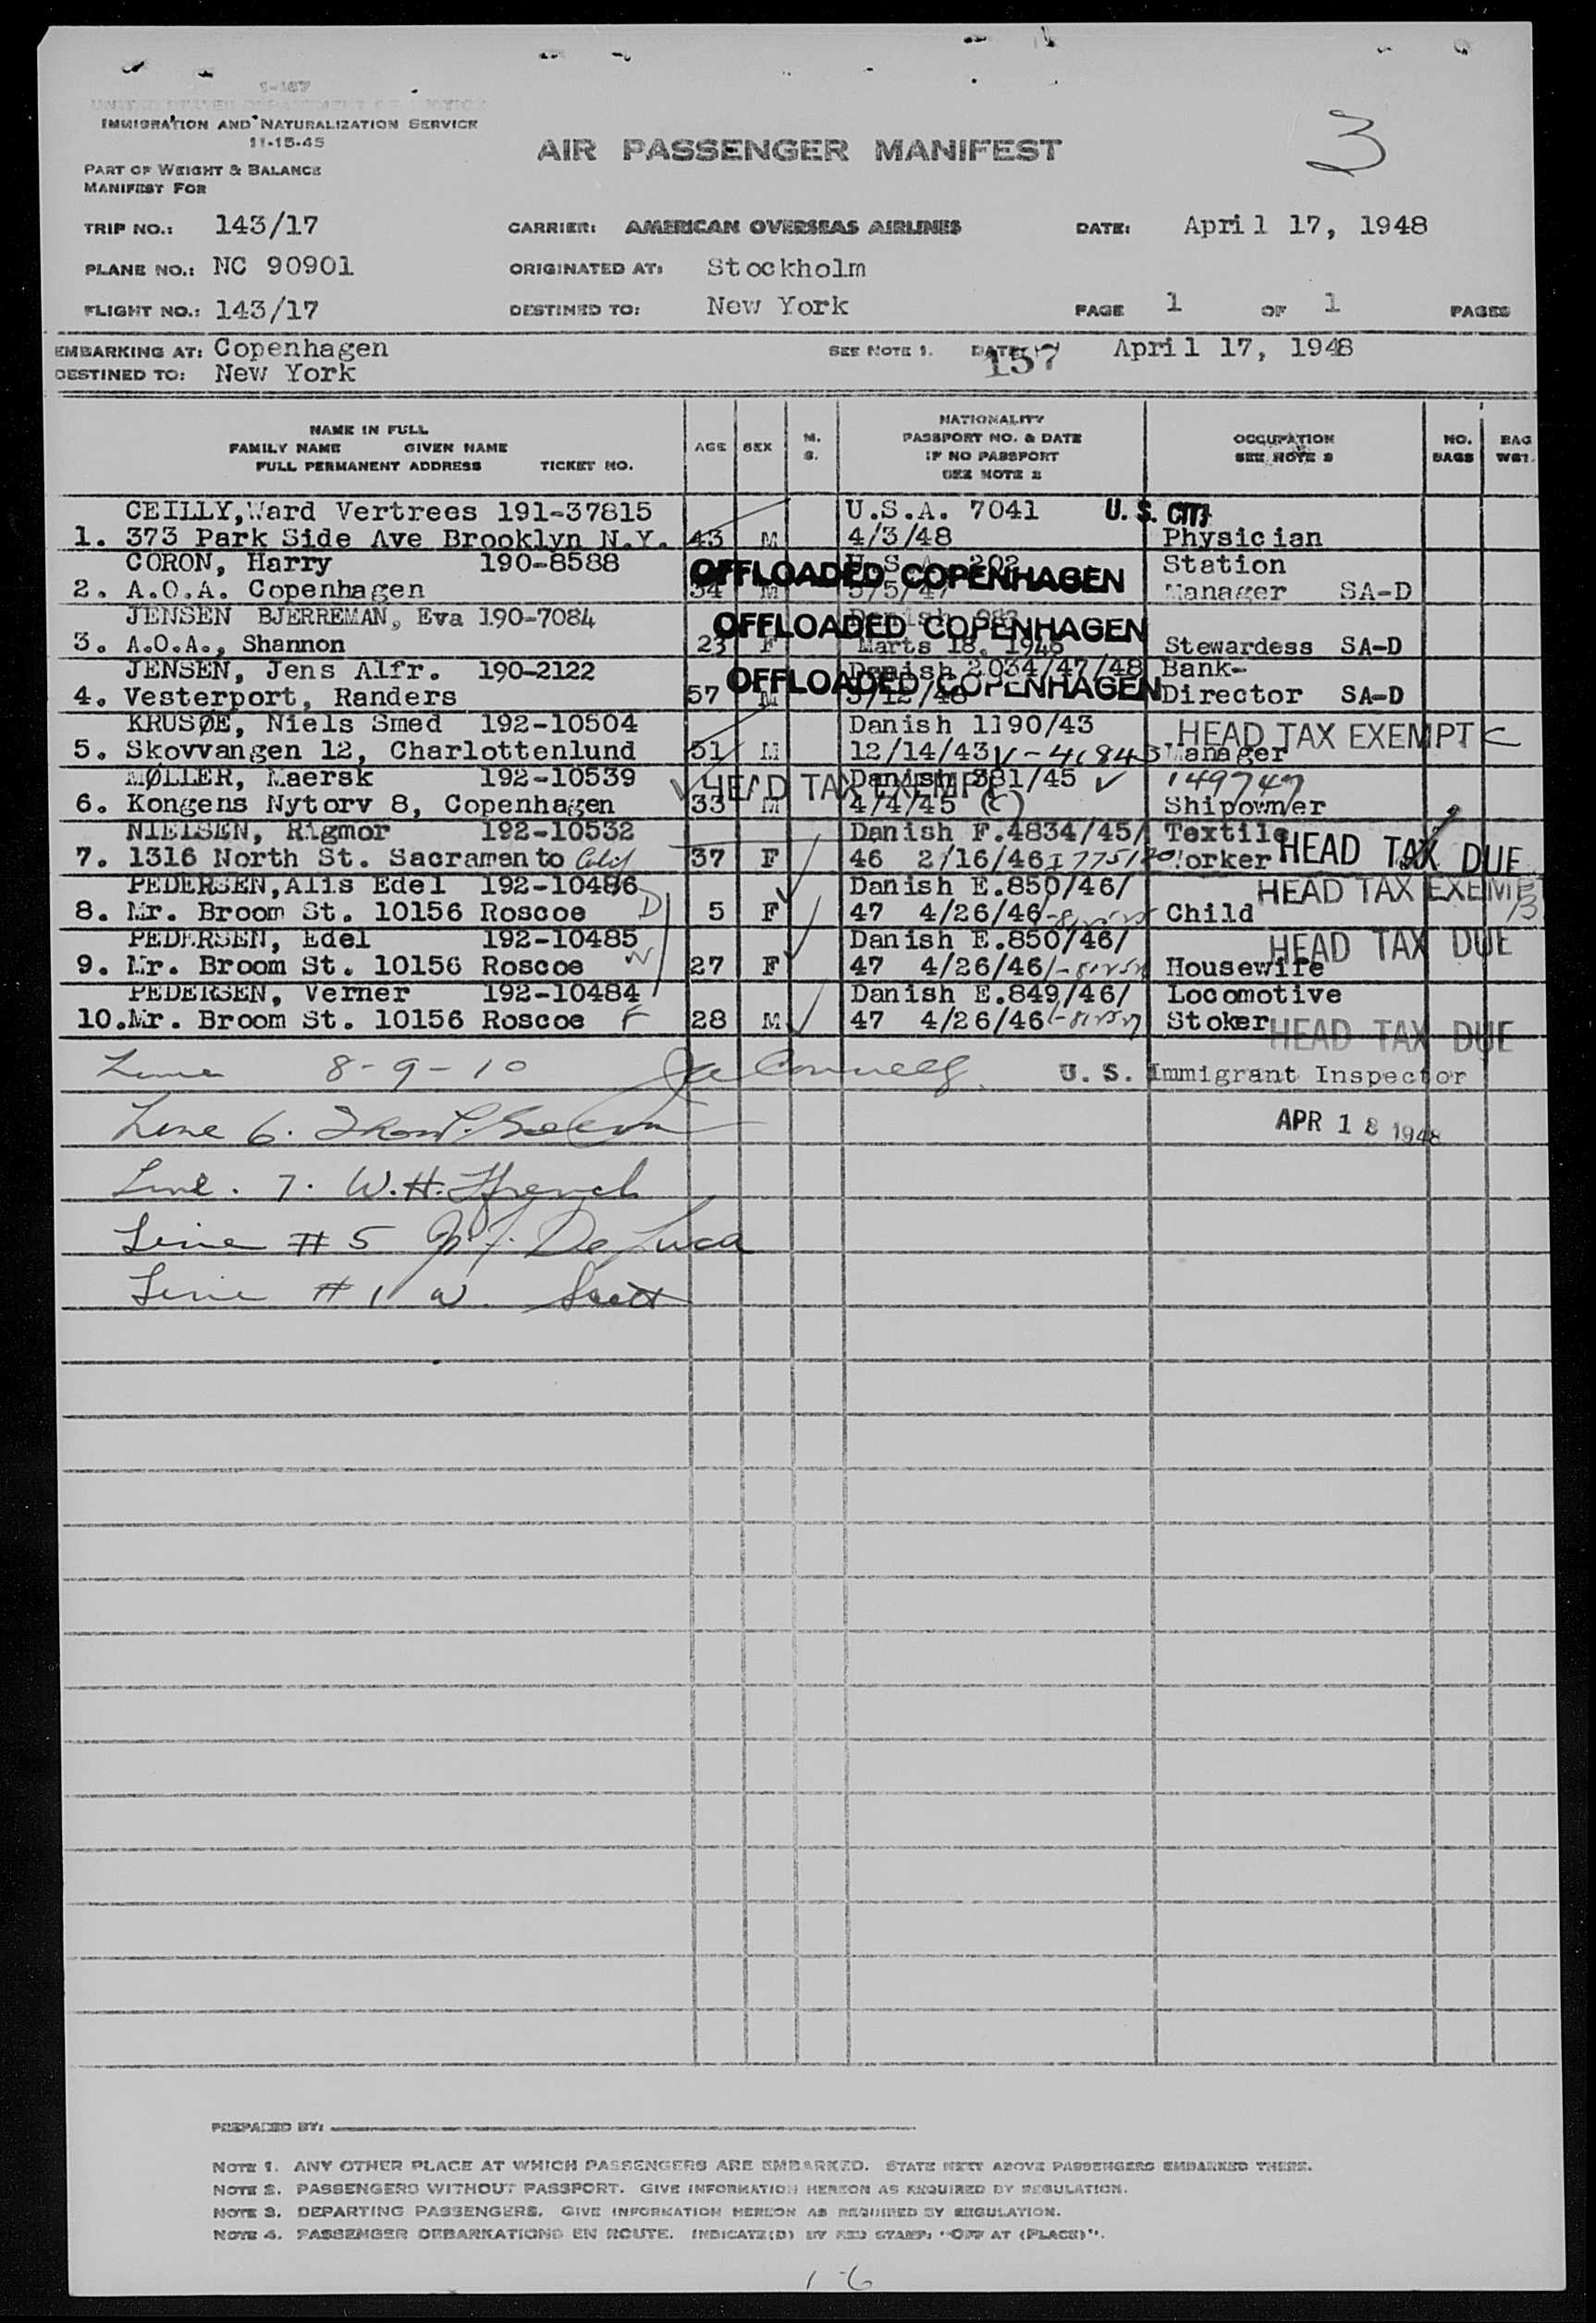 I-467
UNITED STATES DEPARTMENT OF JUSTICE
IMMIGRATION AND NATURALIZATION SERVICE
11-15-45
PART OF WEIGHT & BALANCE
MANIFEST FOR
AIR PASSENGER MANIFEST
3
TRIP NO.: 143/17 CARRIER: AMERICAN OVERSEAS AIRLINES DATE: April 17, 1948
PLANE NO.: NC 90901 ORIGINATED AT: Stockholm
FLIGHT NO.: 143/17 DESTINED TO: New York PAGE 1 OF 1 PAGES
EMBARKING AT: Copenhagen SEE NOTE 1. DATE: April 17, 1948
157
DESTINED TO: New York
NAME IN FULL
FAMILY NAME GIVEN NAME
FULL PERMANENT ADDRESS TICKET NO.
AGE SEX M. S.
NATIONALITY
PASSPORT NO. & DATE
IF NO PASSPORT
SEE NOTE 2
OCCUPATION
SEE NOTE 3
NO. BAGS
BAG WGT.
CEILLY, Ward Vertrees 191-37815 U.S.A. 7041 U.S. CIT
1. 373 Park Side Ave Brooklyn N.Y. 43 M 4/3/48 Physician
CORON, Harry 190-8588 U.S.A. 202 Station
OFFLOADED COPENHAGEN
2. A.O.A. Copenhagen 34 M 5/5/47 Manager SA-D
JENSEN BJERREMAN, Eva 190-7084 Danish
OFFLOADED COPENHAGEN
3. A.O.A., Shannon 23 F Marts 18, 1946 Stewardess SA-D
JENSEN, Jens Alfr. 190-2122 Danish 2034/47/48 Bank-
OFFLOADED COPENHAGEN
4. Vesterport, Randers 57 M 3/12/48 Director SA-D
KRUSØE, Niels Smed 192-10504 Danish 1190/43 HEAD TAX EXEMPT C
5. Skovvangen 12, Charlottenlund 51 M 12/14/43 V-41843 Manager
MØLLER, Maersk 192-10539 Danish 381/45 149747
HEAD TAX EXEMPT
6. Kongens Nytorv 8, Copenhagen 33 M 4/4/45 (C) Shipowner
NIELSEN, Rigmor 192-10532 Danish F.4834/45/ Textile
7. 1316 North St. Sacramento Calif 37 F 46 2/16/46 I 775120 Worker HEAD TAX DUE
PEDERSEN, Alis Edel 192-10486 Danish E.850/46/ HEAD TAX EXEMPT
8. Mr. Broom St. 10156 Roscoe D 5 F 47 4/26/46 Child 13
PEDERSEN, Edel 192-10485 Danish E.850/46/ HEAD TAX DUE
9. Mr. Broom St. 10156 Roscoe W 27 F 47 4/26/46 Housewife
PEDERSEN, Verner 192-10484 Danish E.849/46/ Locomotive
10. Mr. Broom St. 10156 Roscoe F 28 M 47 4/26/46 Stoker HEAD TAX DUE
Line 8-9-10 Connelly U. S. Immigrant Inspector
Line 6. APR 18 1948
Line. 7. W.H. French
Line # 5 De Luca
Line # 1 W. Scott
PREPARED BY:
NOTE 1. ANY OTHER PLACE AT WHICH PASSENGERS ARE EMBARKED. STATE NEXT ABOVE PASSENGERS EMBARKED THERE.
NOTE 2. PASSENGERS WITHOUT PASSPORT. GIVE INFORMATION HEREON AS REQUIRED BY REGULATION.
NOTE 3. DEPARTING PASSENGERS. GIVE INFORMATION HEREON AS REQUIRED BY REGULATION.
NOTE 4. PASSENGER DEBARKATIONS EN ROUTE. INDICATE(D) BY RED STAMP: "OFF AT (PLACE)".
1-6